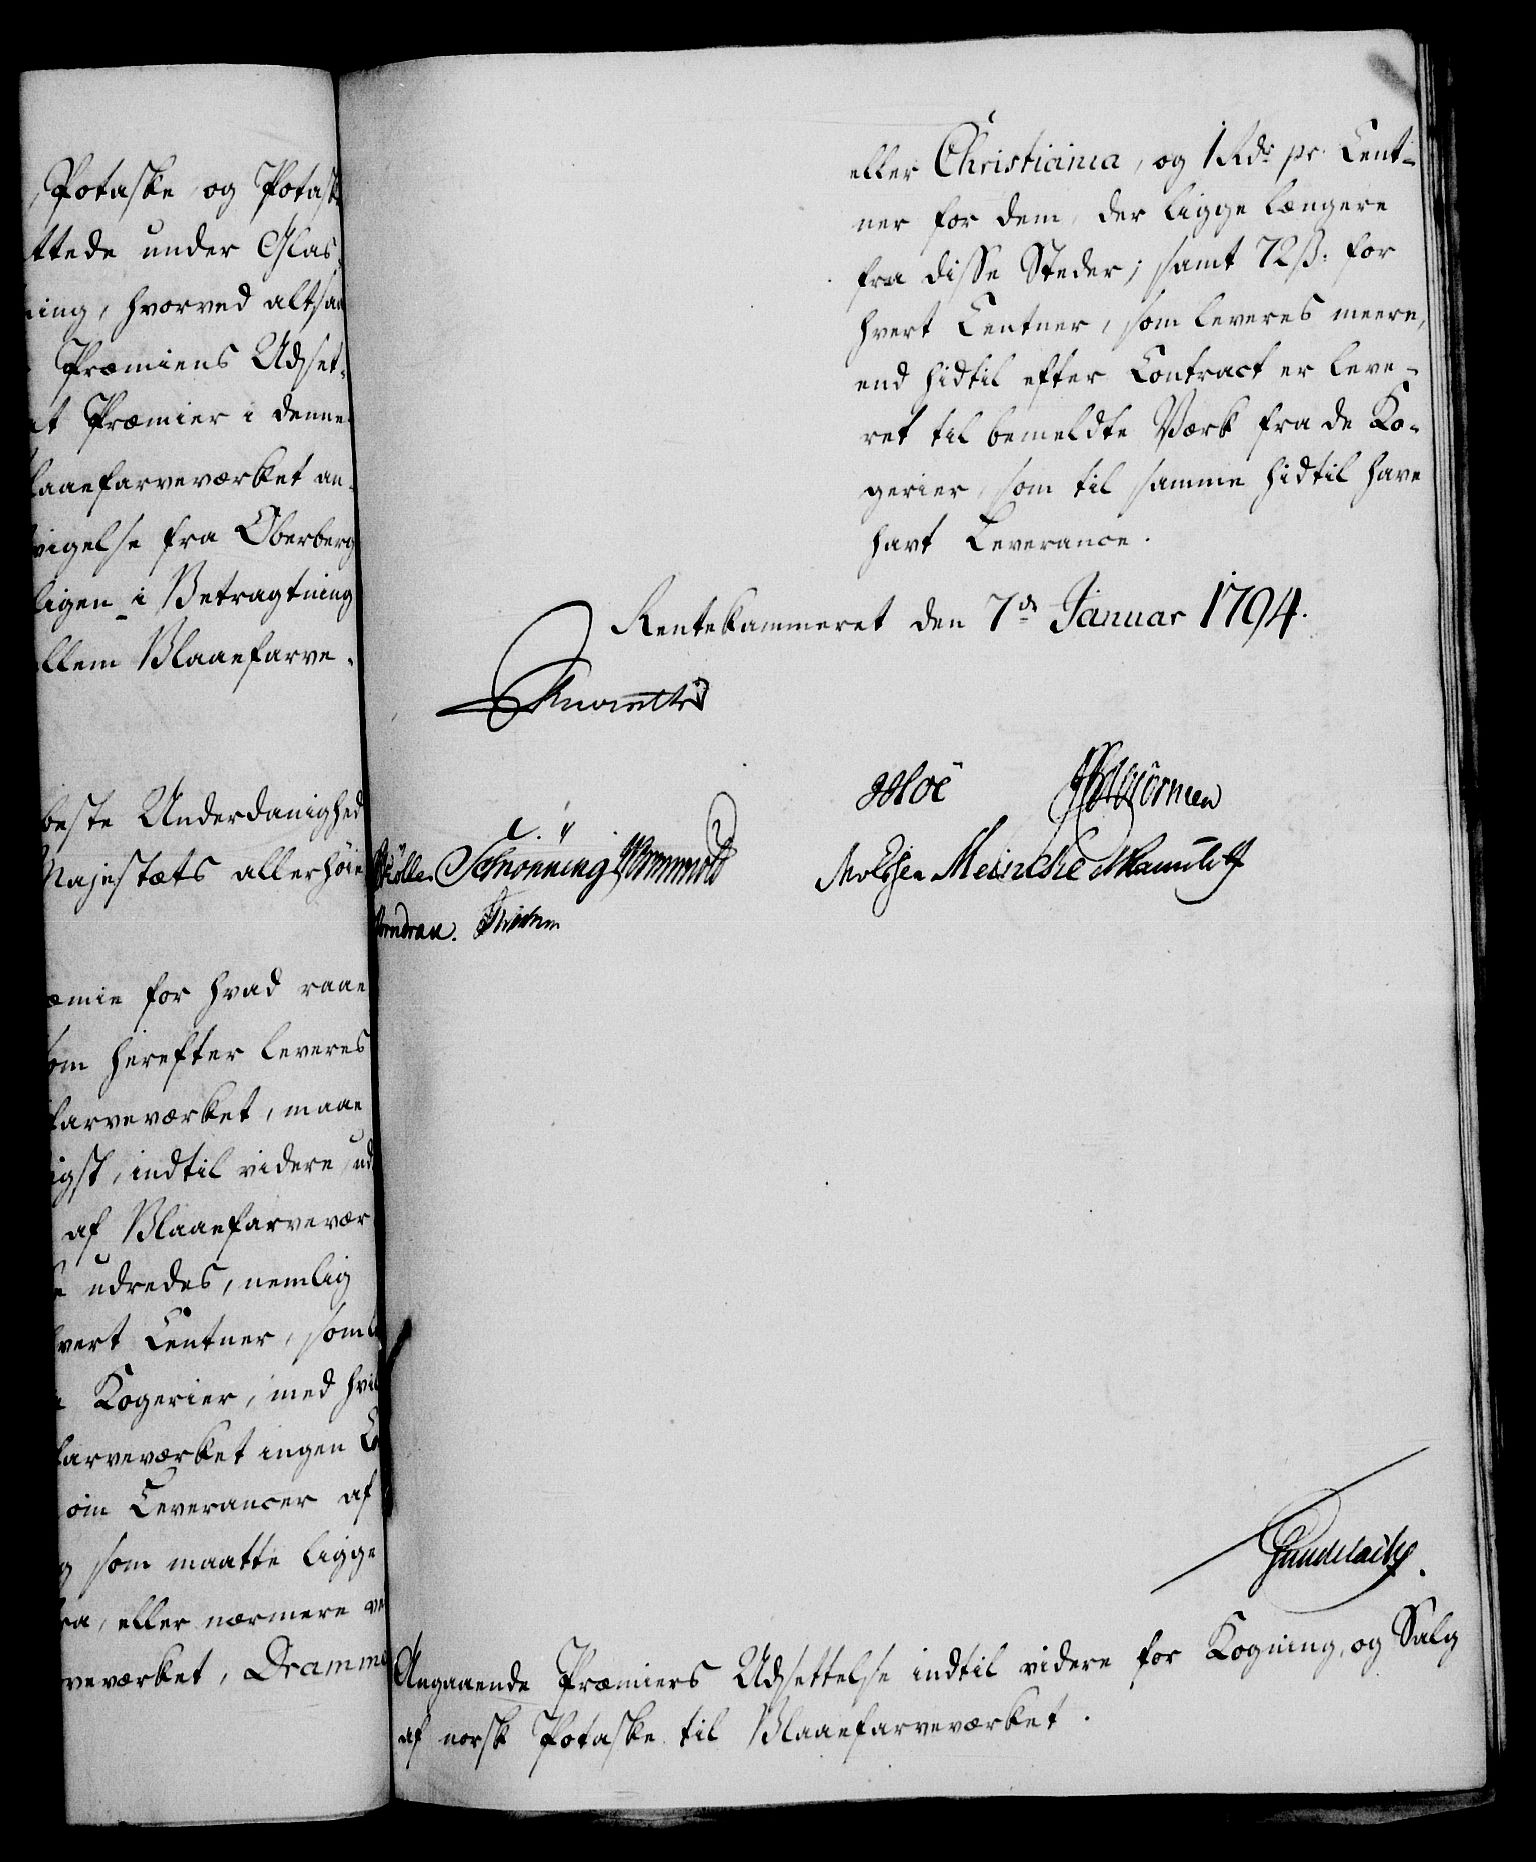 Potaske og Potask
ttede under Glas,
ing, hvorved altsaa
Præmiens Udset,
Præmier i denne
laaefarveværket an,
vigelse fra Oberberg
ligen i Betragtning
llem Blaaefarve,
beste Underdanighed
Majestæts allerhøie
æmie for hvad raae
om herefter leveres
farveværket, maae
igst, indtil videre, ud
af Blaaefarvevær
udredes, nemlig
vert Centner, som
Kogerier, med hvil
farveværket ingen Co
om Leverancer af
og som maatte ligge
ra, eller nærmere ve
veværket, Dramme
eller Christiania, og 1 Rdr pr. Cent-
ner for dem, der ligge længere
fra disse Steder; samt 72 ß. for
hvert Centner, som leveres meere,
end hidtil efter Contract er leve-
ret til bemeldte Værk fra de Ko-
gerier, som til samme hidtil have
havt Leverance.
Rentekammeret den 7de Januar 1794.
Hoë
Müller Schrönning Wormskiold
Meincke
Gundelach
Angaaende Præmiers Udsettelse indtil videre for Kogning, og Salg
af norsk Potaske til Blaaefarveværket.